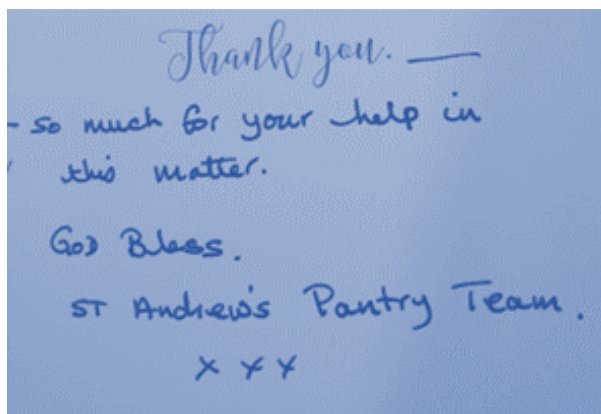 Thank you. —
- so much for your help in
this matter.
GOD Bless.
ST Andrew's Pantry Team.
x x x